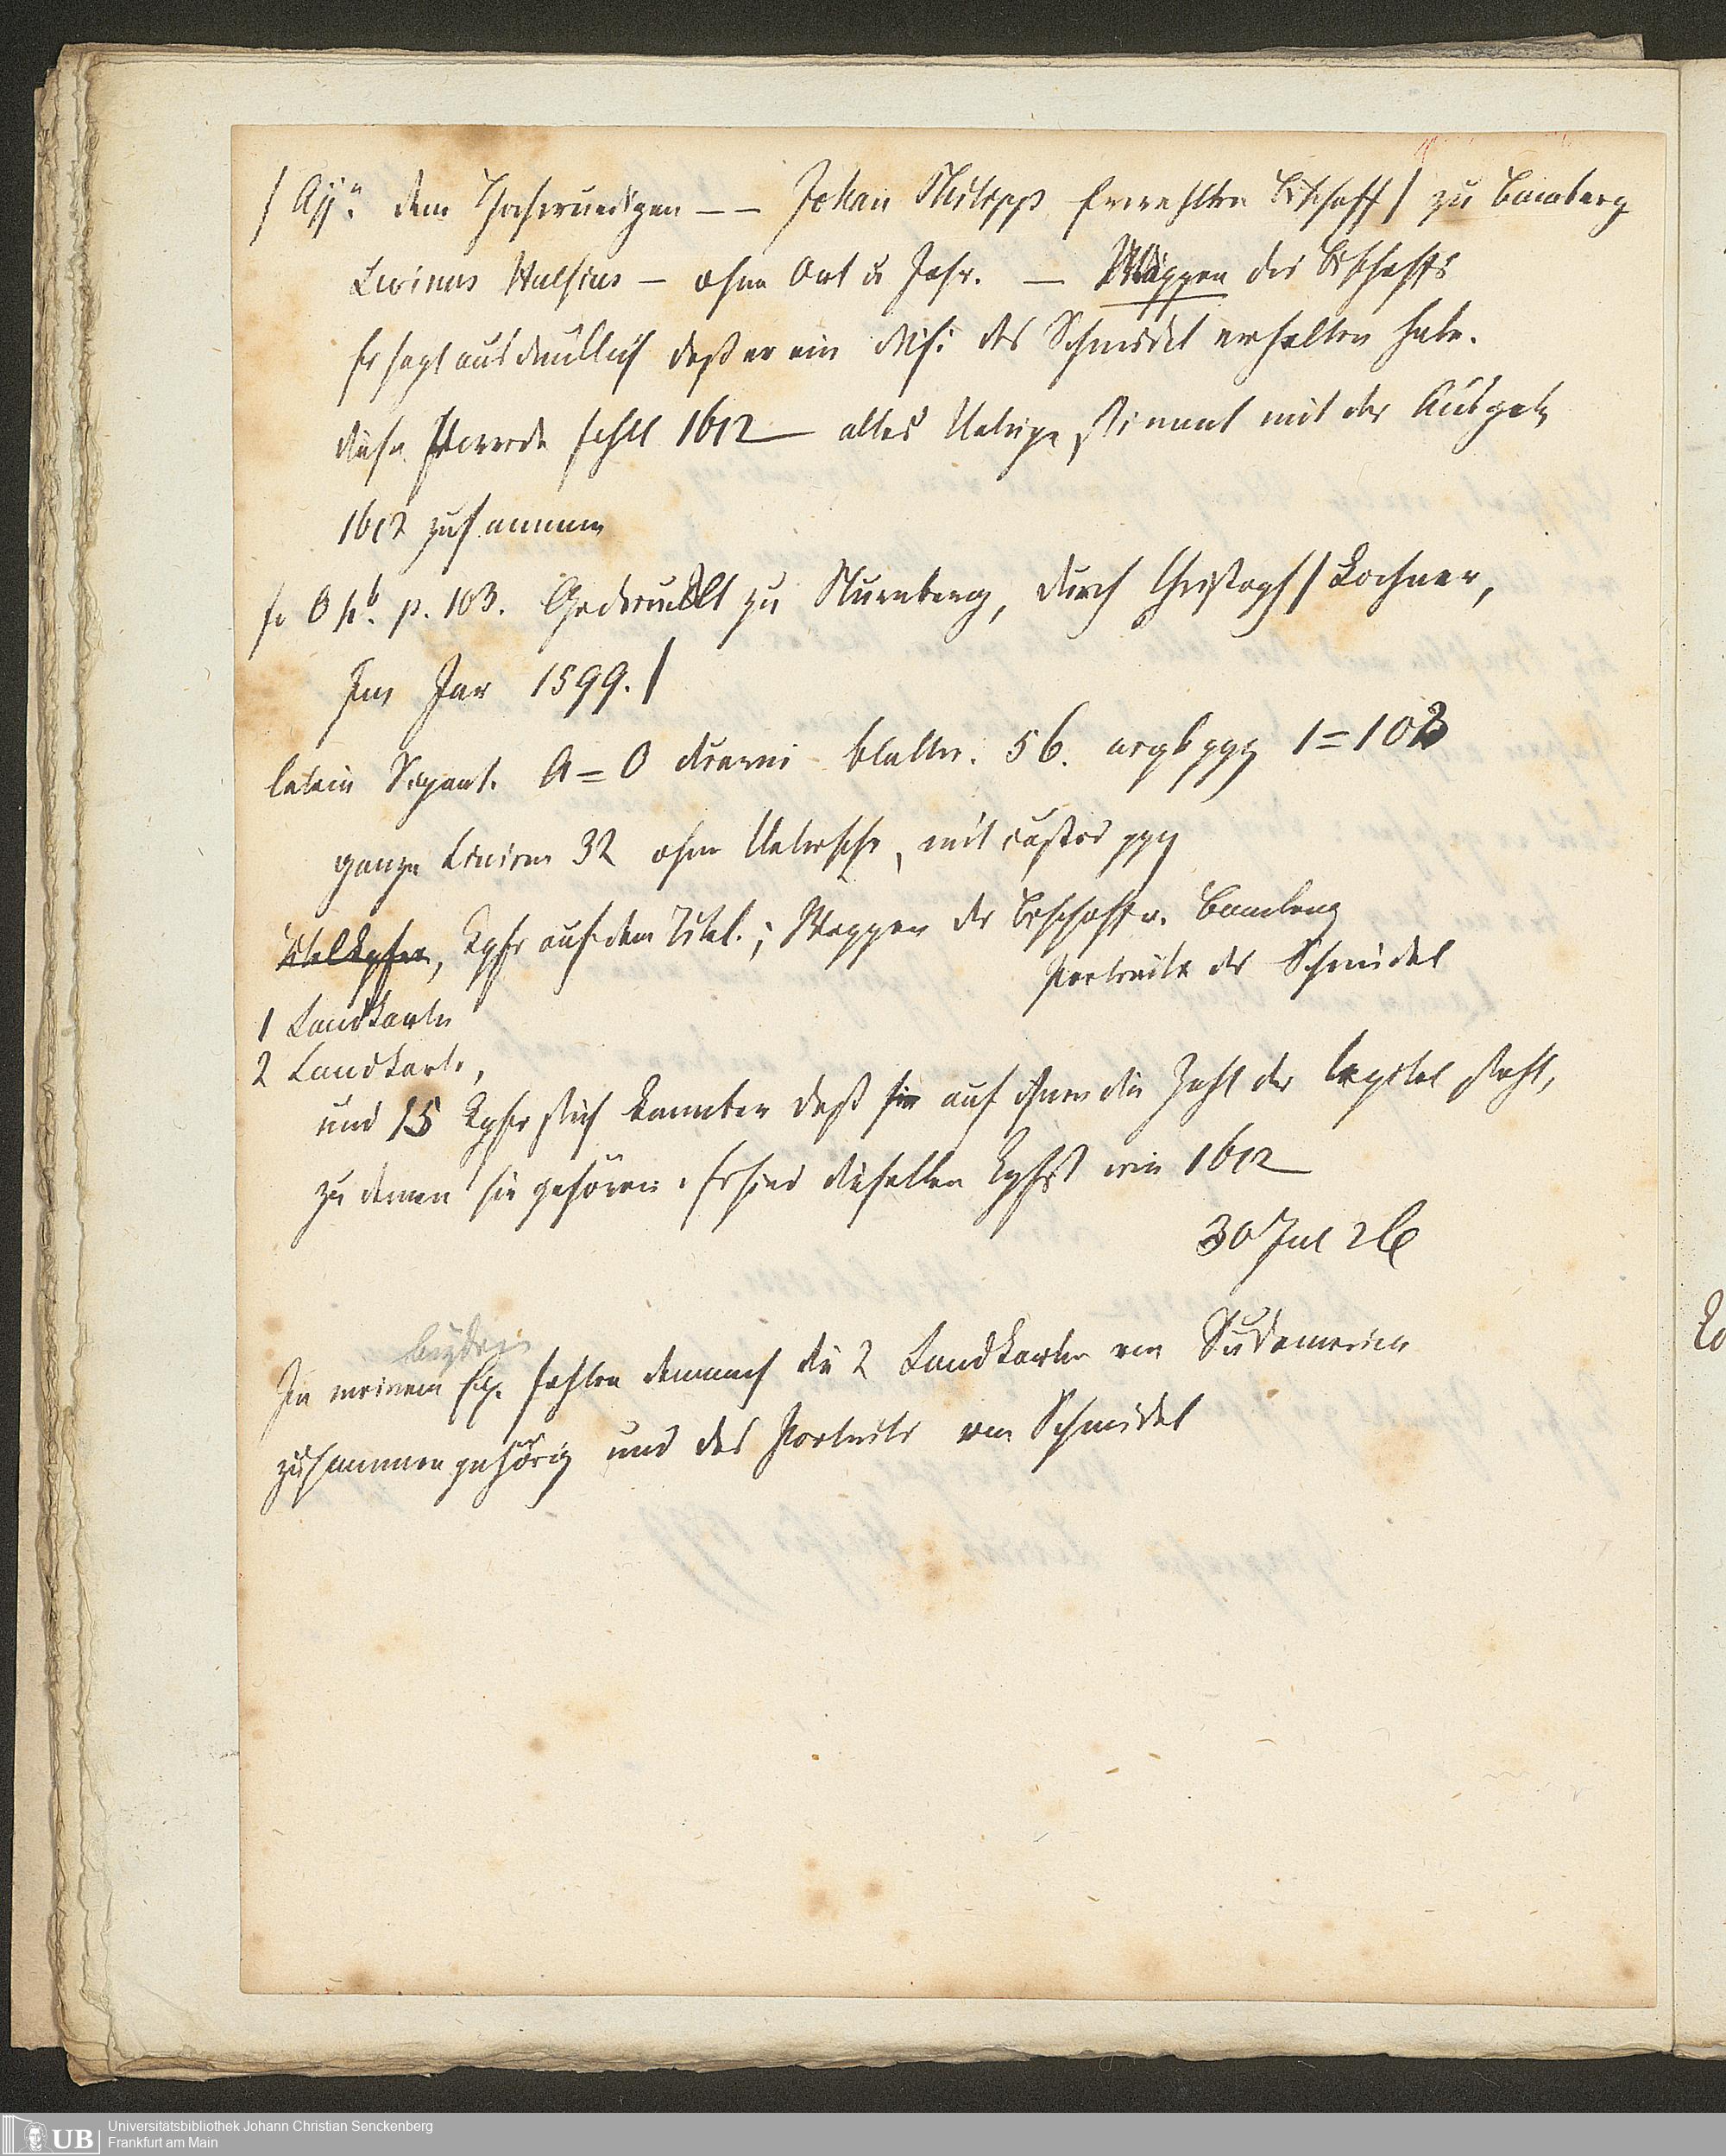 / Aij.ª dem Hochwuerdigen – – Johan Philipps Erwehlten Bischoff / zu Bamberg
Levinus Hulsius – ohne Ort u Jahr. – Wappen des Bischoffs
Er sagt ausdrücklich daß er ein Ms: des Schmidel erhalten habe.
diese Vorrede fehlt 1612 – alles Uebrige stimmt mit der Ausgabe
1612 zusammen
O p. 103. Gedruckt zu Nurnberg, durch Christoph / Lochner,
Im Jar 1599. /
latein Signat. A = O Blätter. 56. 1 = 103
ganze Linien 32 ohne Uebersch, mit custos
Titelkupfer, Kpfr auf dem Titel. ; Wappen des Bischoffs v. Bamberg
Portraite des Schmidel
1 Landkarte
2 Landkarte,
und 15 Kpfr stich daß sie auf ihnen die Zahl der Capitel steht,
zu denen sie gehören. Es sind dieselben Kpfst wie 1612
30 Jul 26
In meinem Ex. fehlen demnach die 2 Landkarten von Südamerica
zusammen gehörig und das Portraite von Schmidel
Universitätsbibliothek Johann Christian Senckenberg
Frankfurt am Main
UB